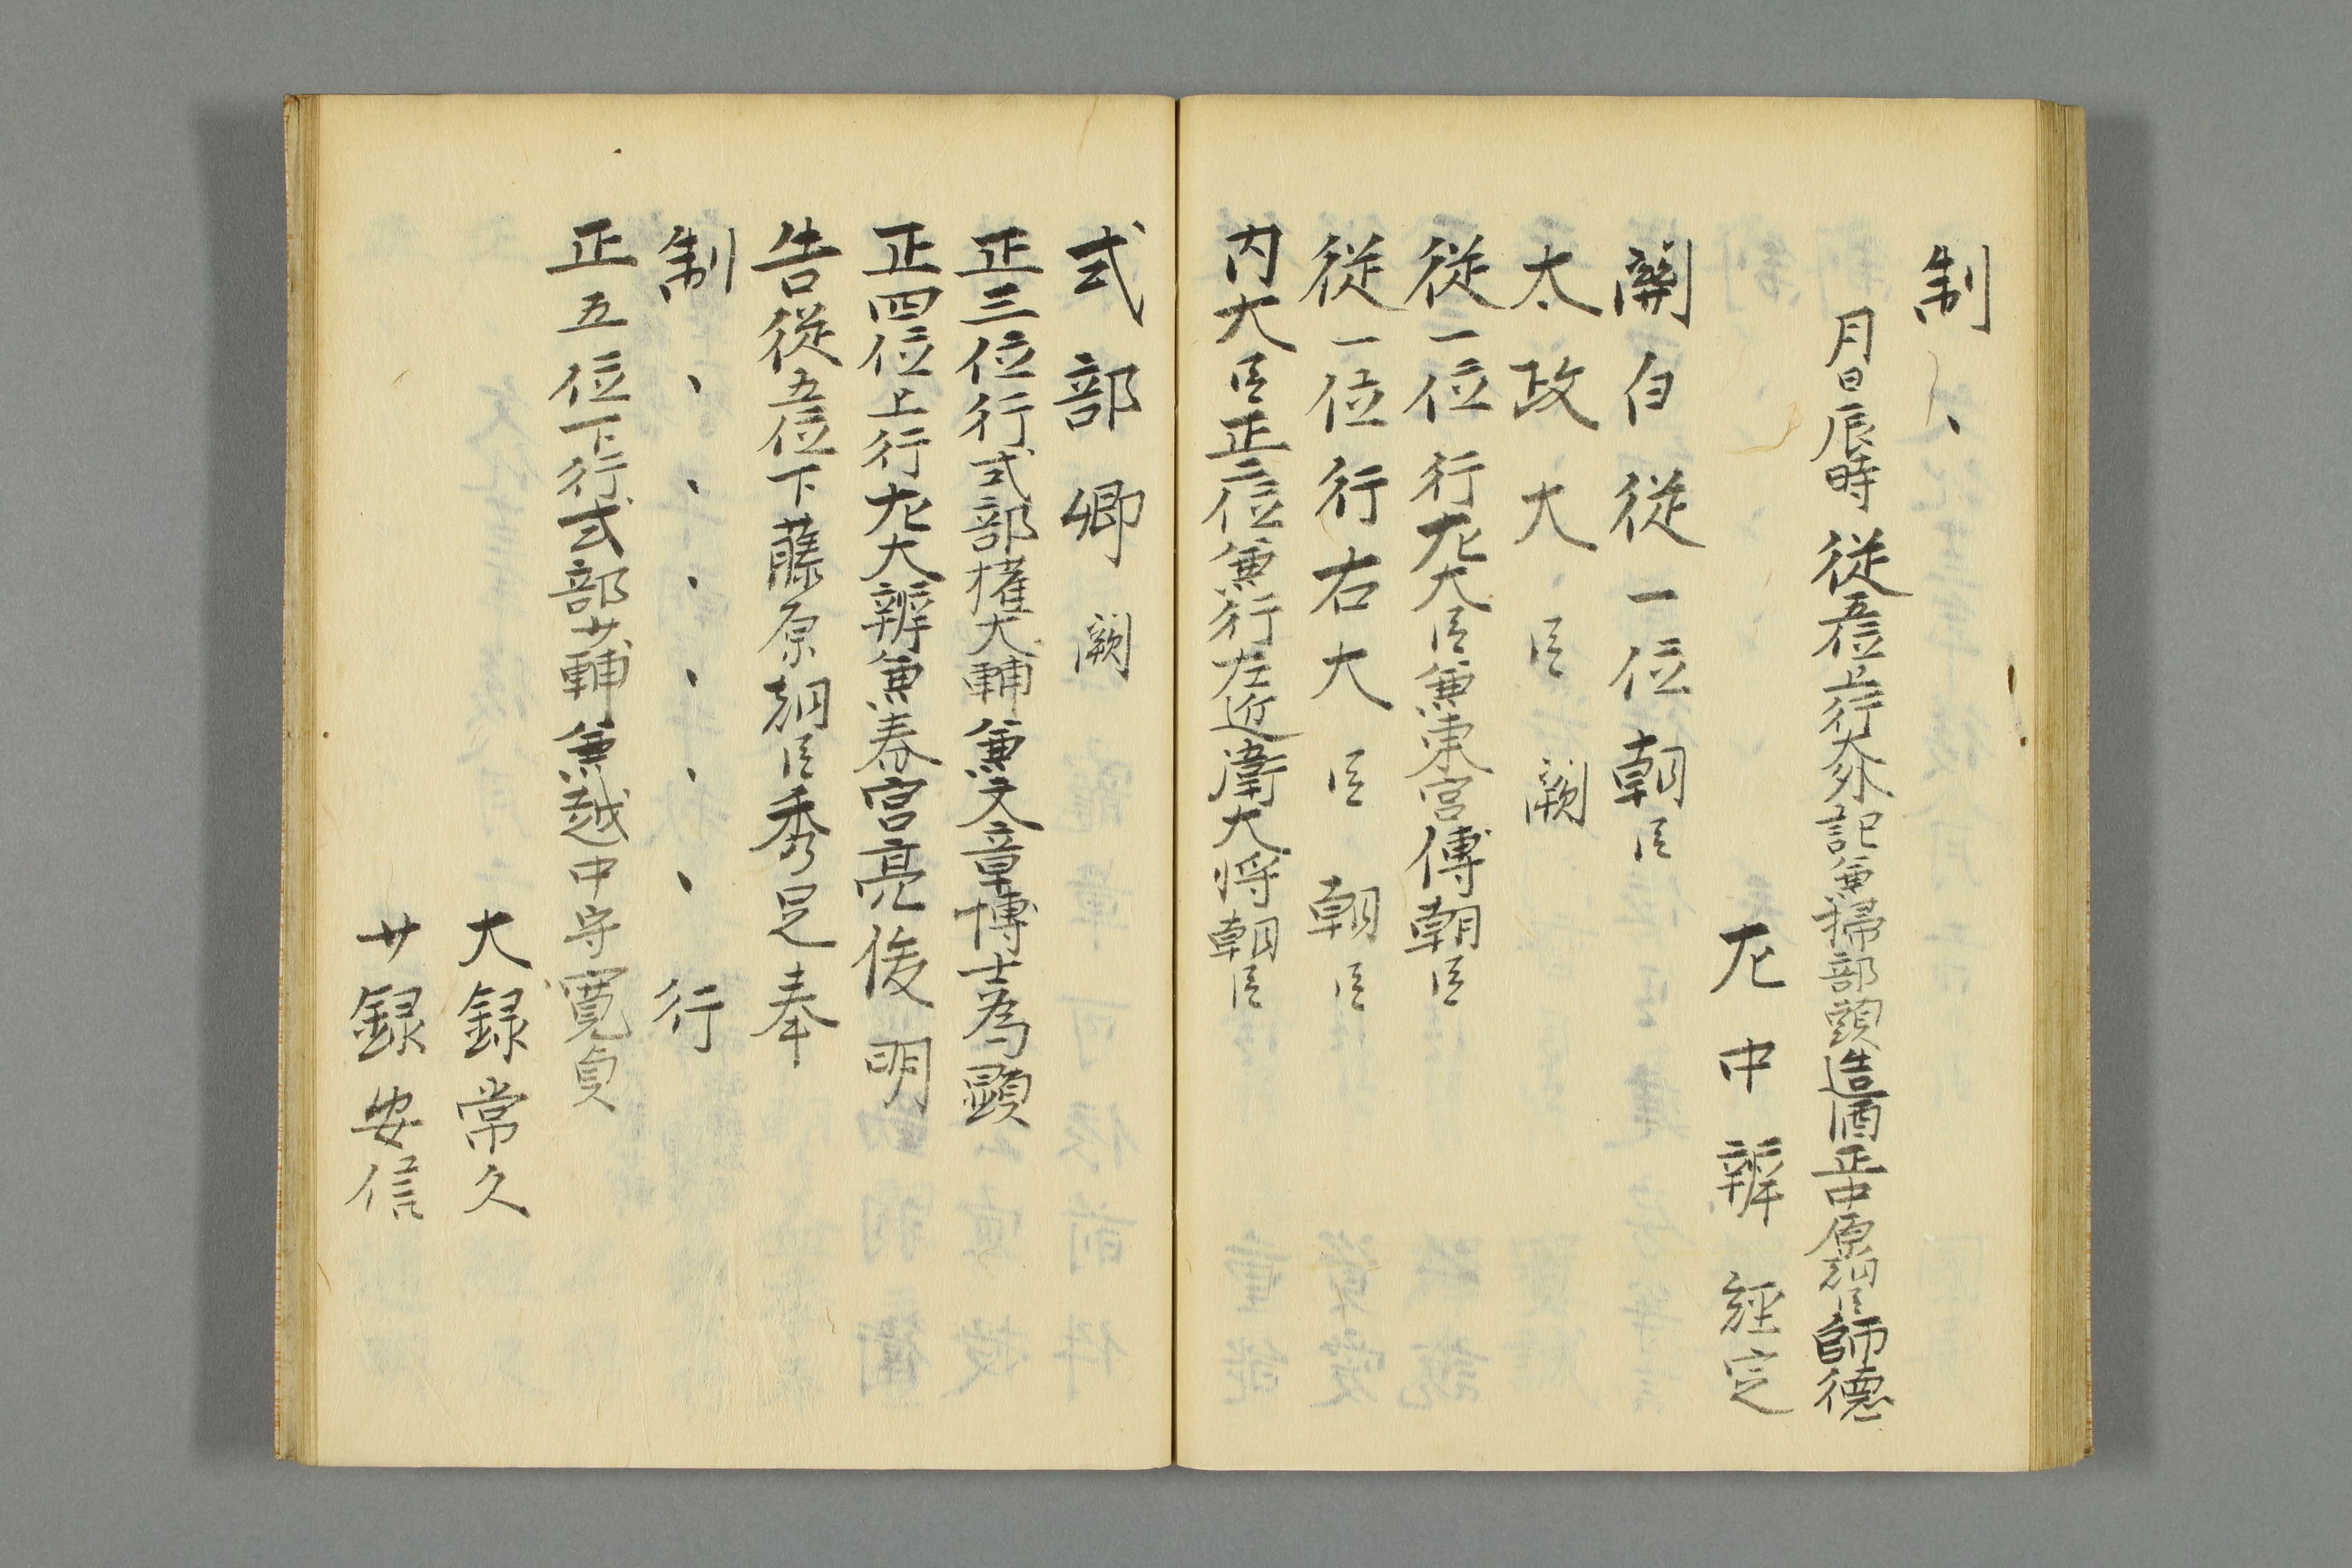 制、、
月日辰時 従五位上行大外記兼掃部頭造酒正中原朝臣師徳
左中辨 経定
関白従一位朝臣
太政大臣 闕
従一位行左大臣兼東宮傅朝臣
従一位行右大臣朝臣
内大臣正二位兼行左近衛大将朝臣
式部卿 闕
正三位行式部権大輔兼文章博士為顕
正四位上行左大辨兼春宮亮俊明
告従五位下藤原朝臣秀足奉
制、、、、、、行
正五位下行式部少輔兼越中守寛貞
大録常久
少録安信